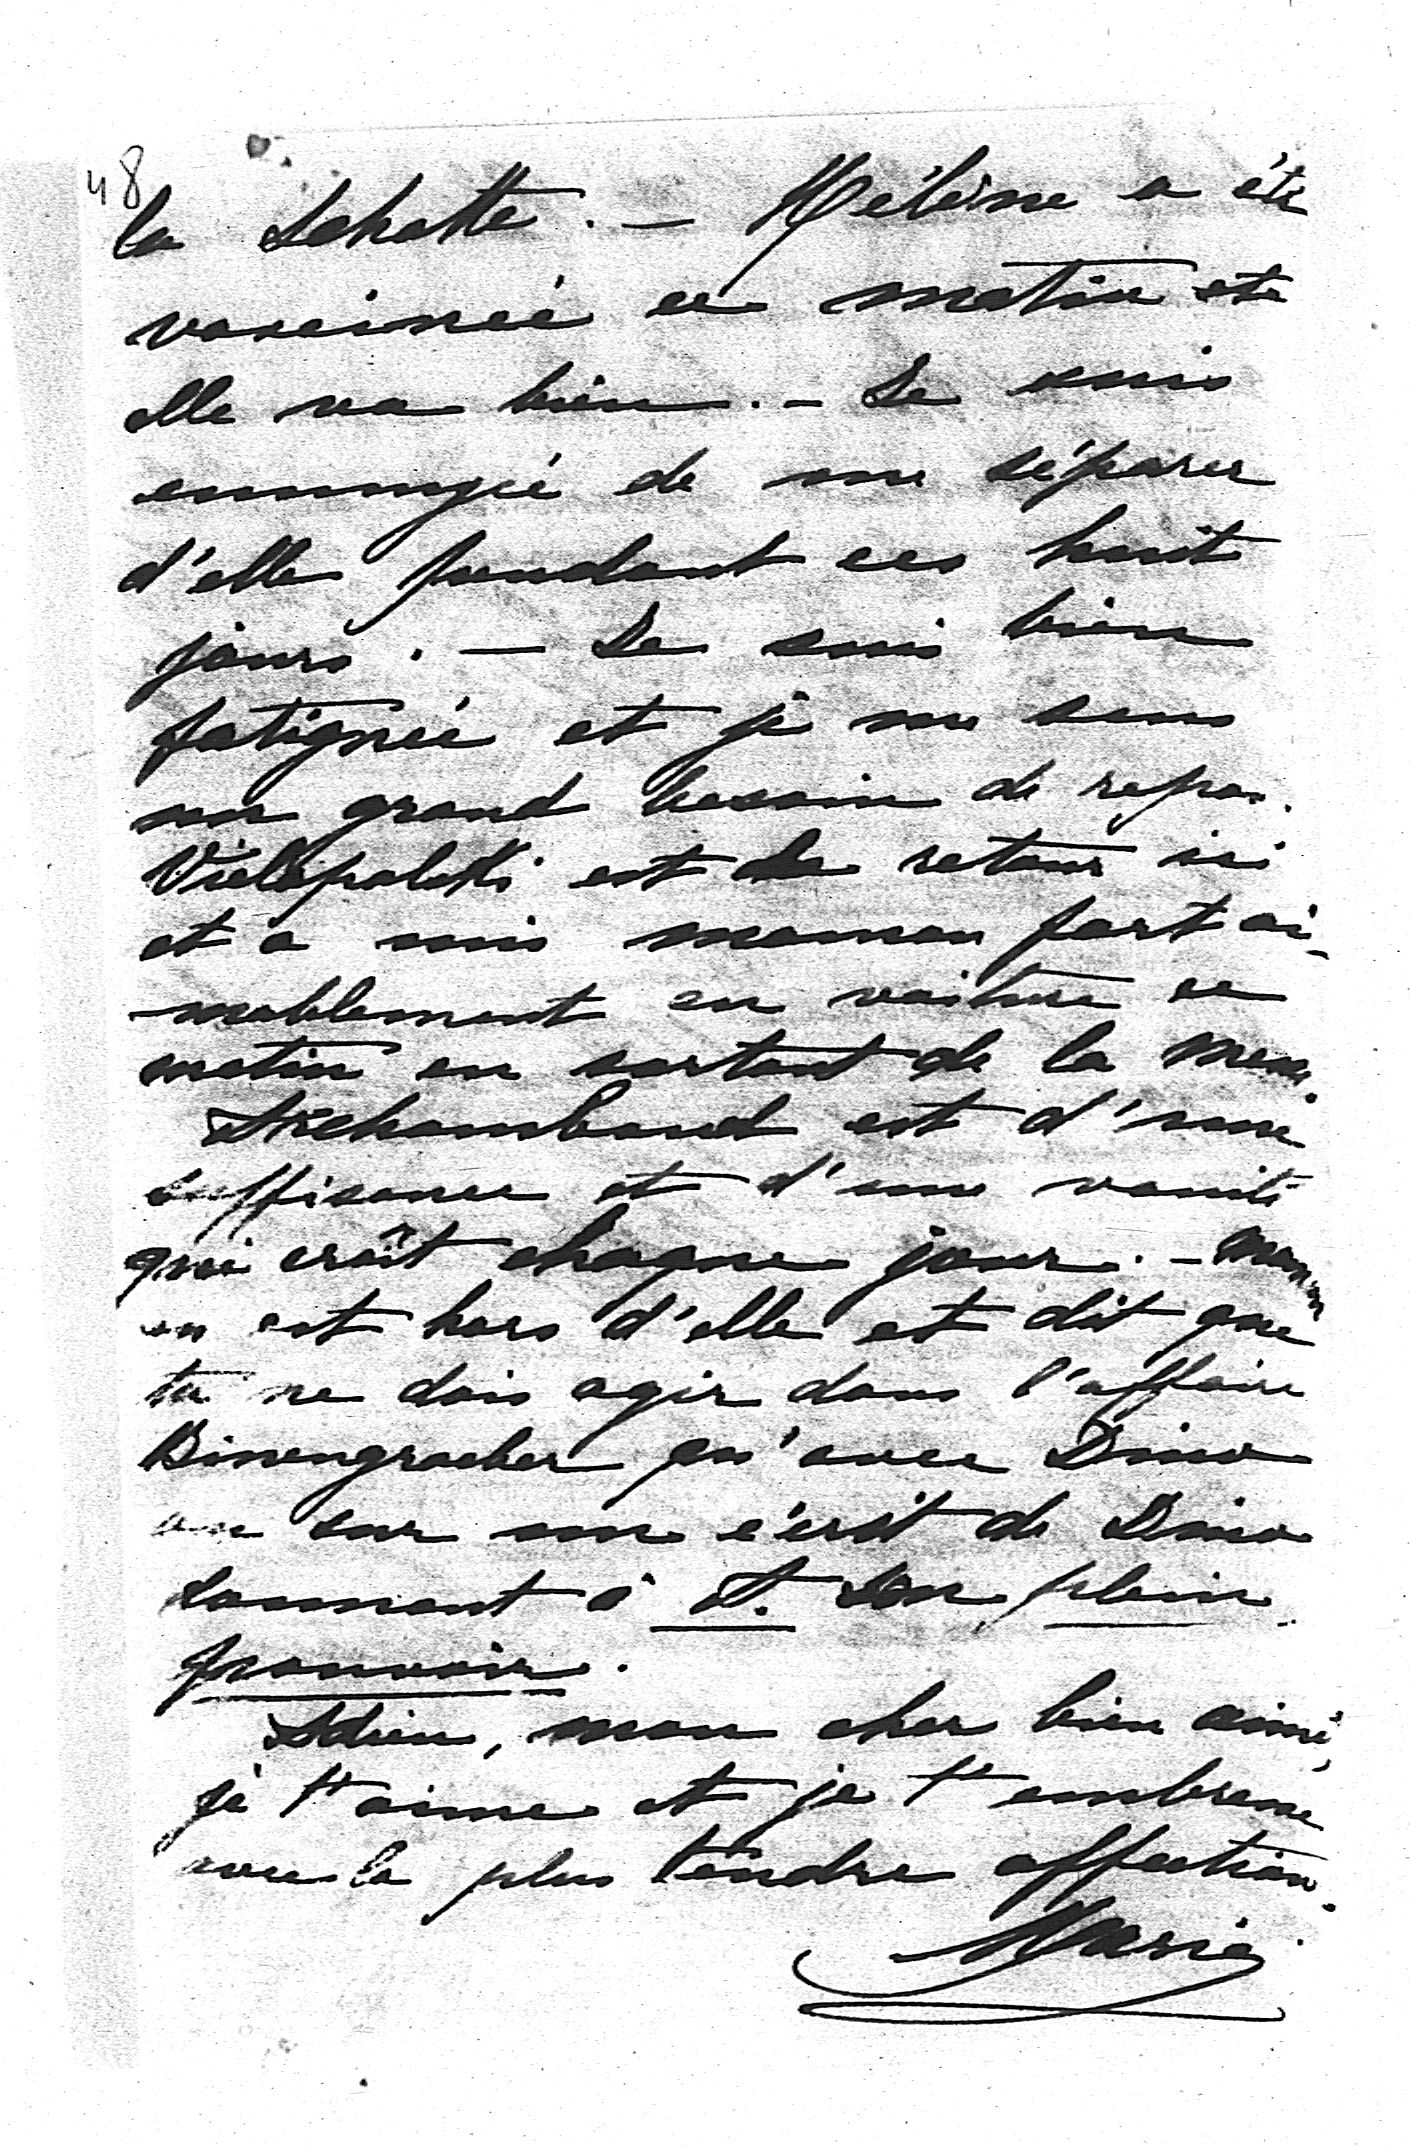 48
la Schatte. — Hélène a été
vaccinée ce matin et
elle va bien. — Je suis
ennuyée de me séparer
d'elle pendant ces huit
jours. — Je suis bien
fatiguée et je me sens
un grand besoin de repos.
Vielopolski est de retour ici
et a mis maman fort ai-
mablement en voiture ce
matin en sortant de la messe
est d'une
suffisance et d'une vanité
qui croît chaque jour. — Maman
en est hors d'elle et dit que
tu ne dois agir dans l'affaire
qu'avec Dino
ou sur un écrit de Dino
donnant à A. son plein
pouvoir.
Adieu, mon cher bien aimé,
je t'aime et je t'embrasse
avec la plus tendre affection.
Marie